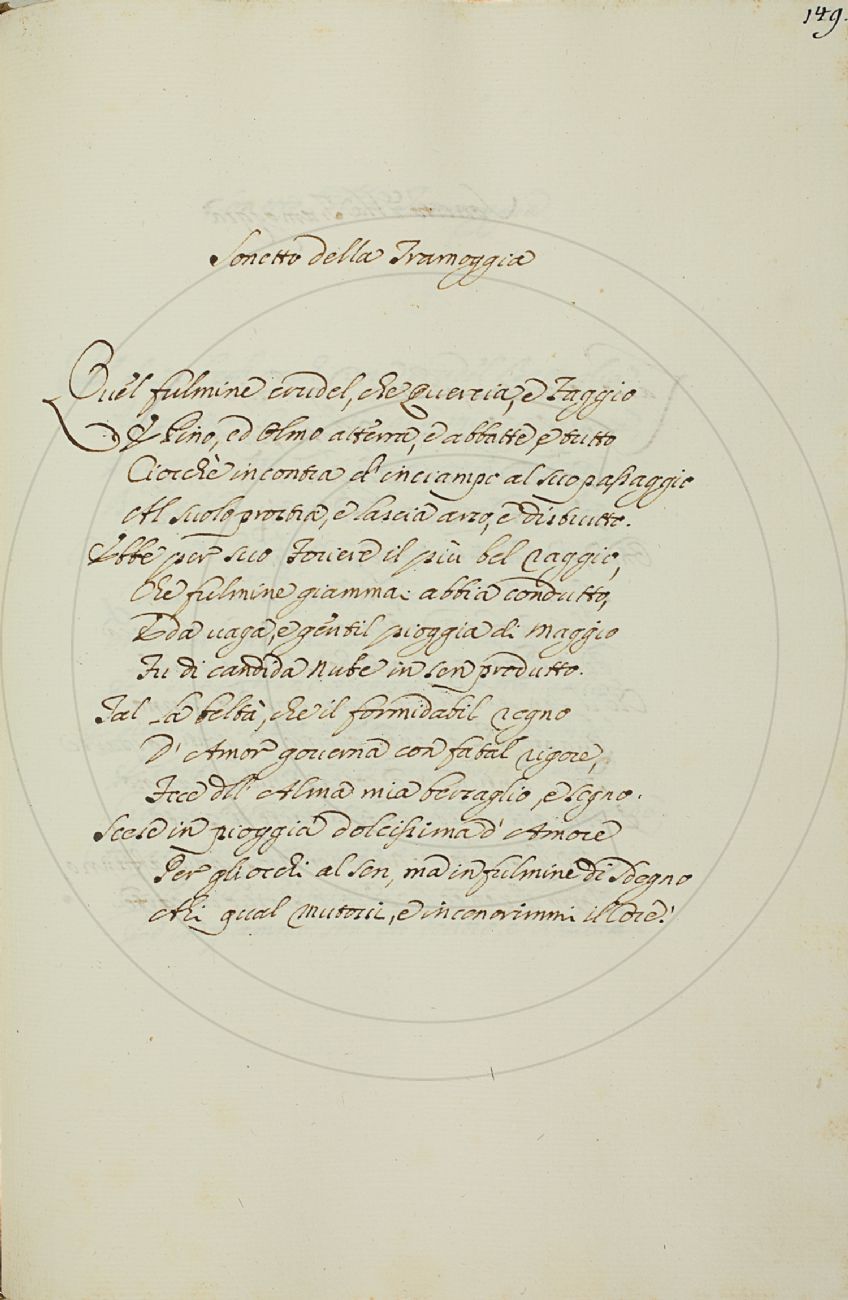 149.
Sonetto della Tramoggia
Quel fulmine crudel, che Quercia, e Faggio
E Pino, ed Olmo atterra, e abbatte, e tutto
Ciocchè incontra d'inciampo al suo passaggio
Al suolo prostra, e lascia arso, e distrutto.
Ebbe per suo Foriere il più bel raggio,
Che fulmine giammai abbia condutto,
E da vaga, e gentil pioggia di Maggio
Fu di candida Nube in sen produtto.
Tal la beltà, che il formidabil regno
D'Amor governa con fatal rigore,
Fece dell'Alma mia berzaglio, e segno.
Scese in pioggia dolcissima d'Amore
Per gli occhi al sen, ma in fulmine di Sdegno
Ahi qual mutossi, e incenerimmi il Core!